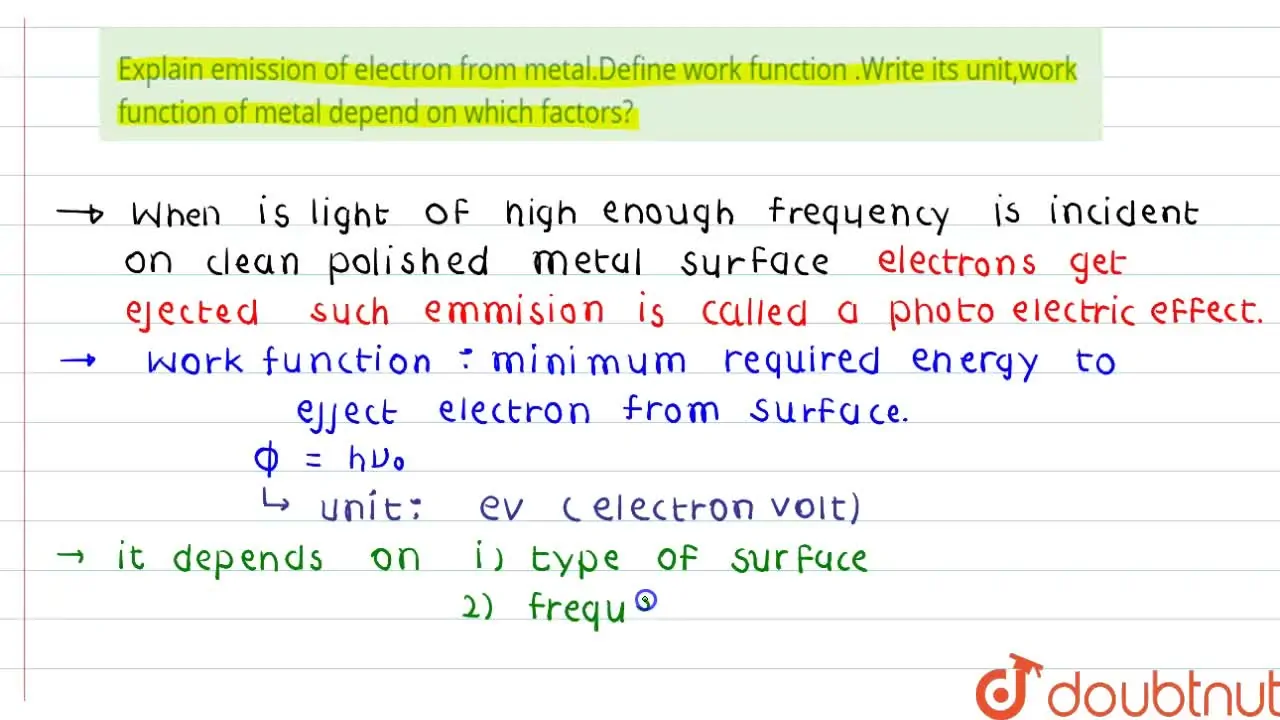 Explain emission of electron from metal.Define work function .Write its unit,work
function of metal depend on which factors?
→ When is light of high enough frequency is incident
on clean polished metal surface electrons get
ejected such emmision is called a photo electric effect.
→ work function : minimum required energy to
ejject electron from surface.
ϕ = hν₀
↳ unit: ev (electron volt)
→ it depends on 1) type of surface
2) frequ
doubtnut